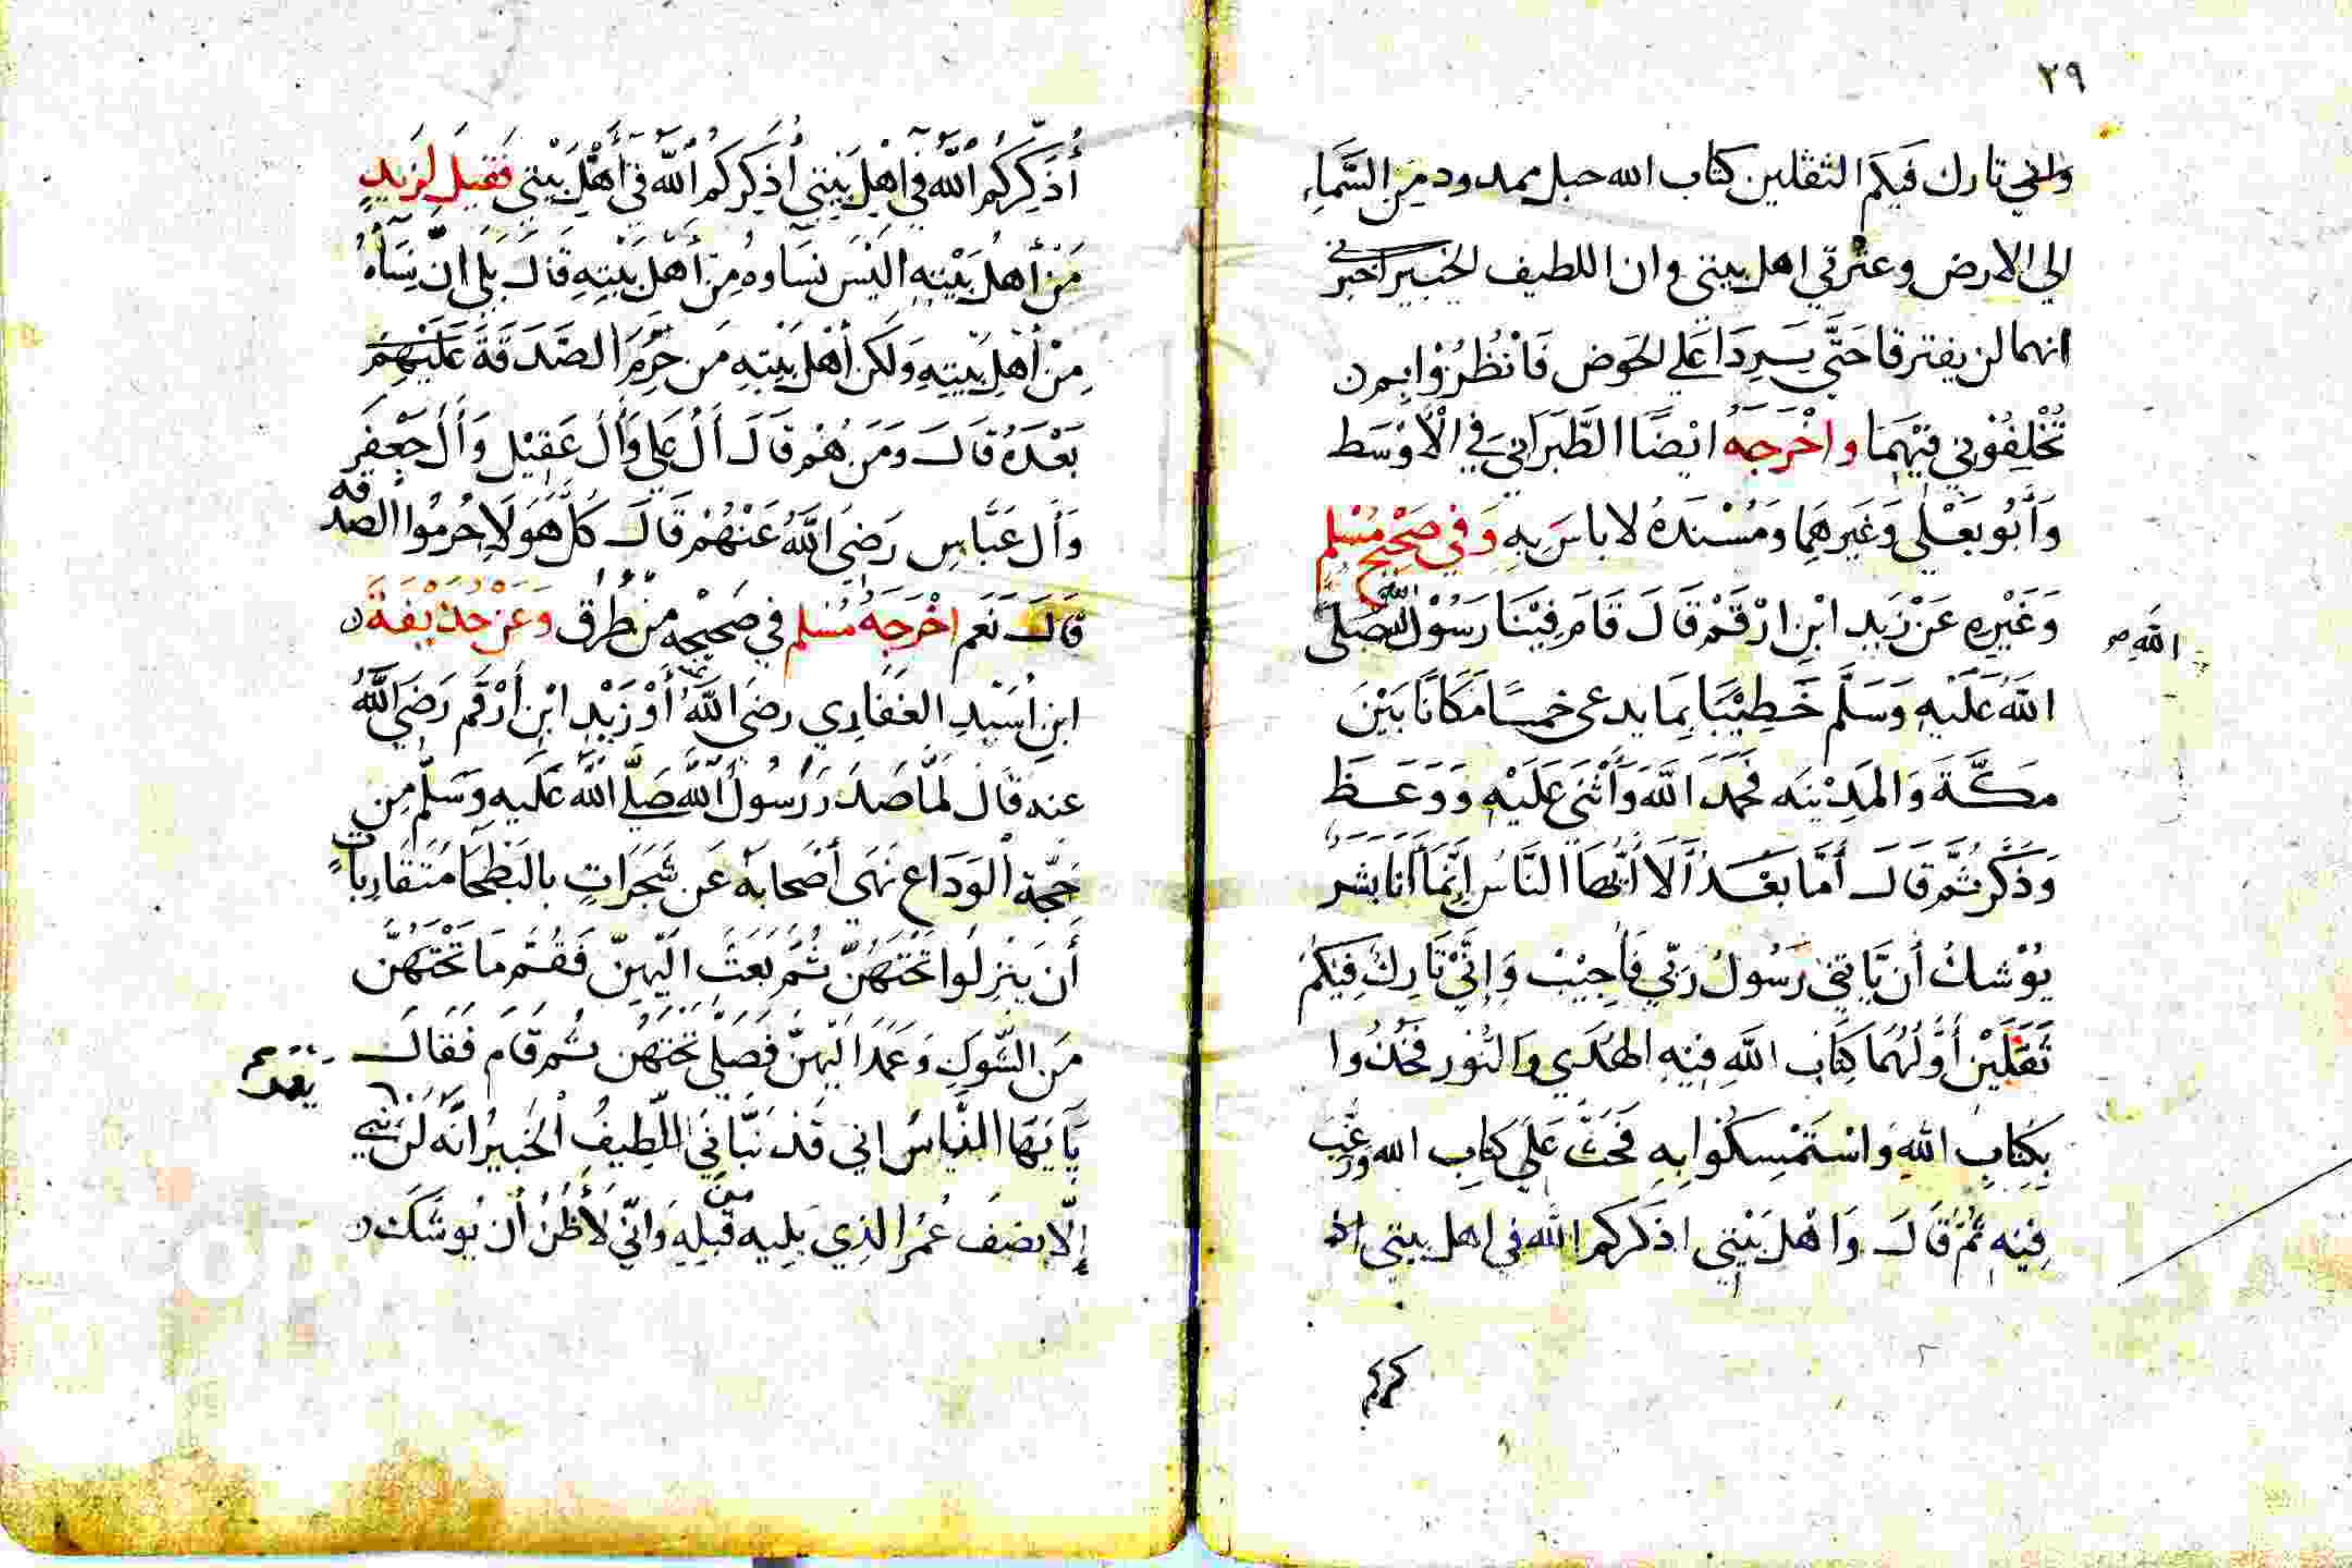 ٢٩
واني تارك فيكم الثقلين كتاب الله حبل ممدود من السماء
الي الارض وعترتي اهل بيتي وان اللطيف الخبير اخبرني
انهما لن يفترقا حَتَّي يَسِردَا عَلي الحَوض فَانْظُرُوْا بِم ن
تُخْلِفُوْنِي فِيْهِمَا واخْرَجَهُ ايْضًا الطَّبَرَانِيَ فِي الْاَوْسَط
وَأبُو يَعْلي وَغَيرهِمَا وَمُسْنَدهُ لا باسَ بِهِ وَفي صَحْيِح مُسْلِم
وَغَيْرِهِ عَنْ زَيدِ ابْنِ ارْقَمْ قَالَ قَامَ فِيْنَا رَسُوْل الله صَلى
الله صح
اللهُ عَلَيْهِ وَسَلَّم خَطِيْبًا بِمَا يدعى خمسًا مَكَانًا بَيْنَ
مَكَّةَ وَالمَدِيْنَه فَحَمَدَ اللهَ وَأَثْنَى عَلَيْهِ وَوَعَظَ
وَذَكَّرَ ثُمَّ قَالَ أمَّا بَعْدُ أَلَا أَيُّهَا النَّاسُ اِنَّمَا أنَا بَشَر
يُوْشكُ أن يَّاتِيَنِي رَسُولُ رَبّي فَأجِيْبْ وَإنِّيْ تَارِكُ فِيْكُمْ
ثَقَلَيْن أوَّلُهُمَا كِتَابُ اللَّهِ فِيْهِ الهُدَي وَالنُّور فَخُذُوا
بِكِتابِ اللهِ وَاسْتَمْسِكُوا بِهِ فَحَثَّ عَلَي كِتابِ الله وَرَغَّبَ
فِيْهِ ثُمَّ قَالَ وَاهْلَ بَيْتِي اذكركم الله في اهل بيتي اذ
كركم
أُذَكِّرَكُم اللهَ فِي اهْلِ بَيْتِي أُذَكِّركُمُ اللهَ فِي أهْلِ بَيْتِي فَقِيلَ لِزيدٍ
مَنْ أهلُ بَيْتِهِ اليْسَ نسَاوهُ مِنْ أهْلِ بَيْتِهِ قَالَ بَلي انّ نِسَآهُ
مِنْ أهْلِ بَيْتِهِ وَلَكِن أهْلُ بَيْتِهِ مَن حُرِمَ الصَّدَقَةَ عَلَيْهِمْ
بَعْدَهُ قَالَ وَمَن هُمْ قَالَ أَلُ عَلي وَأَلُ عَقِيْل وَأَلُ جَعْفَر
وَأَل عَبَّاسٍ رَضِيَ اللَّهُ عَنْهُمْ قَالَ كلّ هَوُلَاِ حُرِمُوا الصدقه
قَالَ نَعَم اخْرَجَهُ مُسْلم في صَحِيْحِه مِنْ طُرُق وَعَنْ حُذَيْفَةَ ن
ابنِ اُسَيْدِ الغَفَاري رضيَ اللَّهُ أَوْ زَيْدِ ابْنِ أرْقَم رَضَيَ اللَّهُ
عنه
عنه قَال لَمَّا صَدَرَ رَسُولُ اللَّهِ صَلَّي اللَّهُ عَلَيهِ وَسَلّم مِن
حَجّة الْوَدَاعِ نَهَى أَصْحَابَهُ عَن شَجَرَاتٍ بالبَطْحَا مُتَقَارِبَات
أن يَنْزِلُوا تَحْتَهُنّ ثُمَّ بَعَثَ الَيْهِنّ فَقُمّ مَا تَحْتَهُنّ
مَن الشّوكِ وَعَمَدَ الَيْهِنّ فَصَلّي تَحْتَهُن ثُم قَامَ فَقَالَ
يَا يَهَا النَّاسُ اني قَدْ نَبَّانيَ اللَّطِيفُ الْخَبِيرُ انّهُ لَن
إلّا نِصْفَ عُمُر الذِي يَلِيه من قَبْلِهِ وَانّي لَأظُنُ أن يُوشَكَ ن